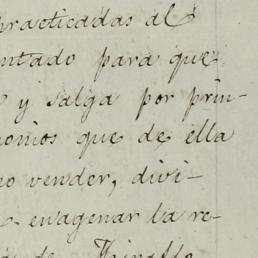 practicadas al
ntado para que
y salga por prin-
monios que de ella
no vender, divi-
enagenar la re-
de